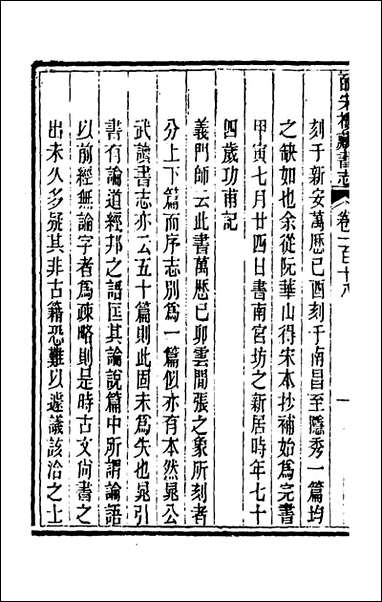 皕宋樓藏書志 卷一百十八 一
刻于新安萬歷己酉刻于南昌至隱秀一篇均
之缺如也余從阮華山得宋本抄補始爲完書
甲寅七月廿四日書南宮坊之新居時年七十
四歲功甫記
義門師云此書萬歷己卯雲間張之象所刻者
分上下篇而序志別爲一篇似亦有本然晁公
武讀書志亦云五十篇則此固未爲失也晁引
書有論道經邦之語匡其論說篇中所謂論語
以前經無論字者爲疎略則是時古文尚書之
出未久多疑其非古籍恐難以遽議該洽之士